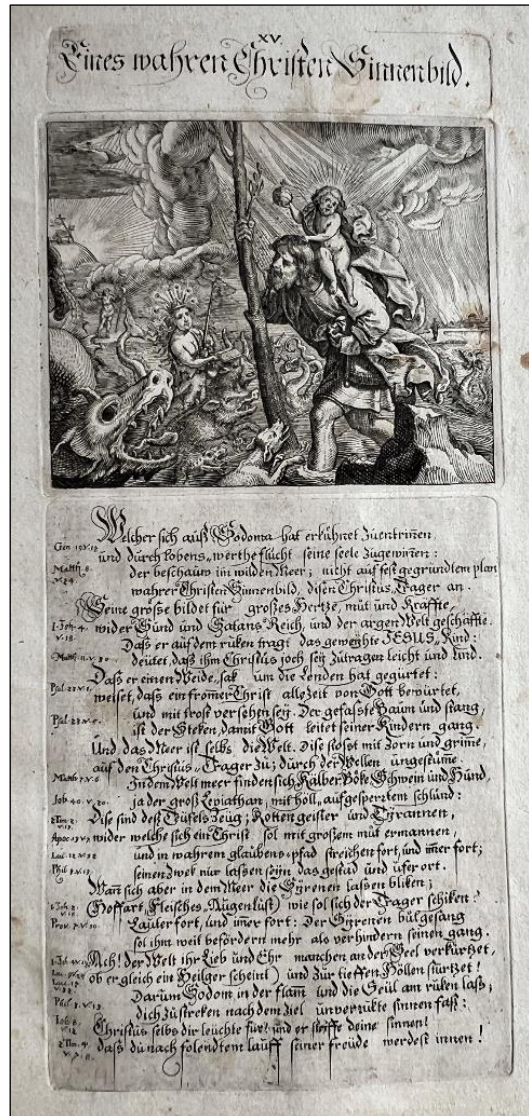 XV.
Eines wahren Christen Sinnenbild.
Welcher sich auß Sodoma hat erkühnet Zuentrinen,
und durch lobens-werthe flucht seine seele zugewinen:
der beschauw im wilden Meer; nicht auf fest gegrundtem plan
wahrer Christen Sinnenbild, disen Christus-Trager an.
Seine große bildet für großes Hertze, mut und Kräffte,
wider Sünd und Satans Reich, und der argen Welt geschäffte.
Daß er auf dem ruken tragt das geweyhte JESUS-Kind:
deutet, daß ihm Christus joch seÿ Zutragen leicht und lind.
Daß er einen Weide-sak um die Lenden hat gegürtet:
weiset, daß ein fromer Christ alle Zeit von Gott bewürtet,
und mit trost versehen seÿ. Der gefaßte Baum und stang,
ist der Steken, damit Gott leitet seiner Kindern gang.
Und das Meer ist selbs die Welt. Dise stoßet mit Zorn und grime,
auf den Christus-Trager Zu; durch der Wellen ungestüme.
In dem Welt meer finden sich Kälber Böke Schwein und Hünd,
ja der groß Leviathan, mit höll-aufgesperztem schlünd:
Dise sind des Teüfels Zeug; Rottengeister und Tÿrannen,
wider welche sich ein Christ sol mit großem mut ermannen,
und in wahrem glaubens-pfad streichen fort, und imer fort;
seinen Zwek nur laßen seÿn das gestad und ufer ort.
Wan sich aber in dem Meer die Sÿrenen laßen bliken;
(Hoffart, Fleisches-Augenlust) wie sol sich der Trager schiken?
Lauffe fort, und imer fort: Der Sÿrenen bůlgesang
sol ihm weil befördern mehr als verhindern seinen gang.
Ach! der Welt ihr Lieb und Ehr manchen an der Seel verkürtzet,
ob er gleich ein Heilger scheint) und Zur tieffen Höllen stürtzet!
Darum Sodom in der flam und die Seül am ruken laß;
dich Zustreken nach dem Ziel unverrukte sinnen faß:
Christus selbs dir leuchte für! und er steiffe deine sinnen!
daß du nach folendtem lauff seiner freüde werdest innen!